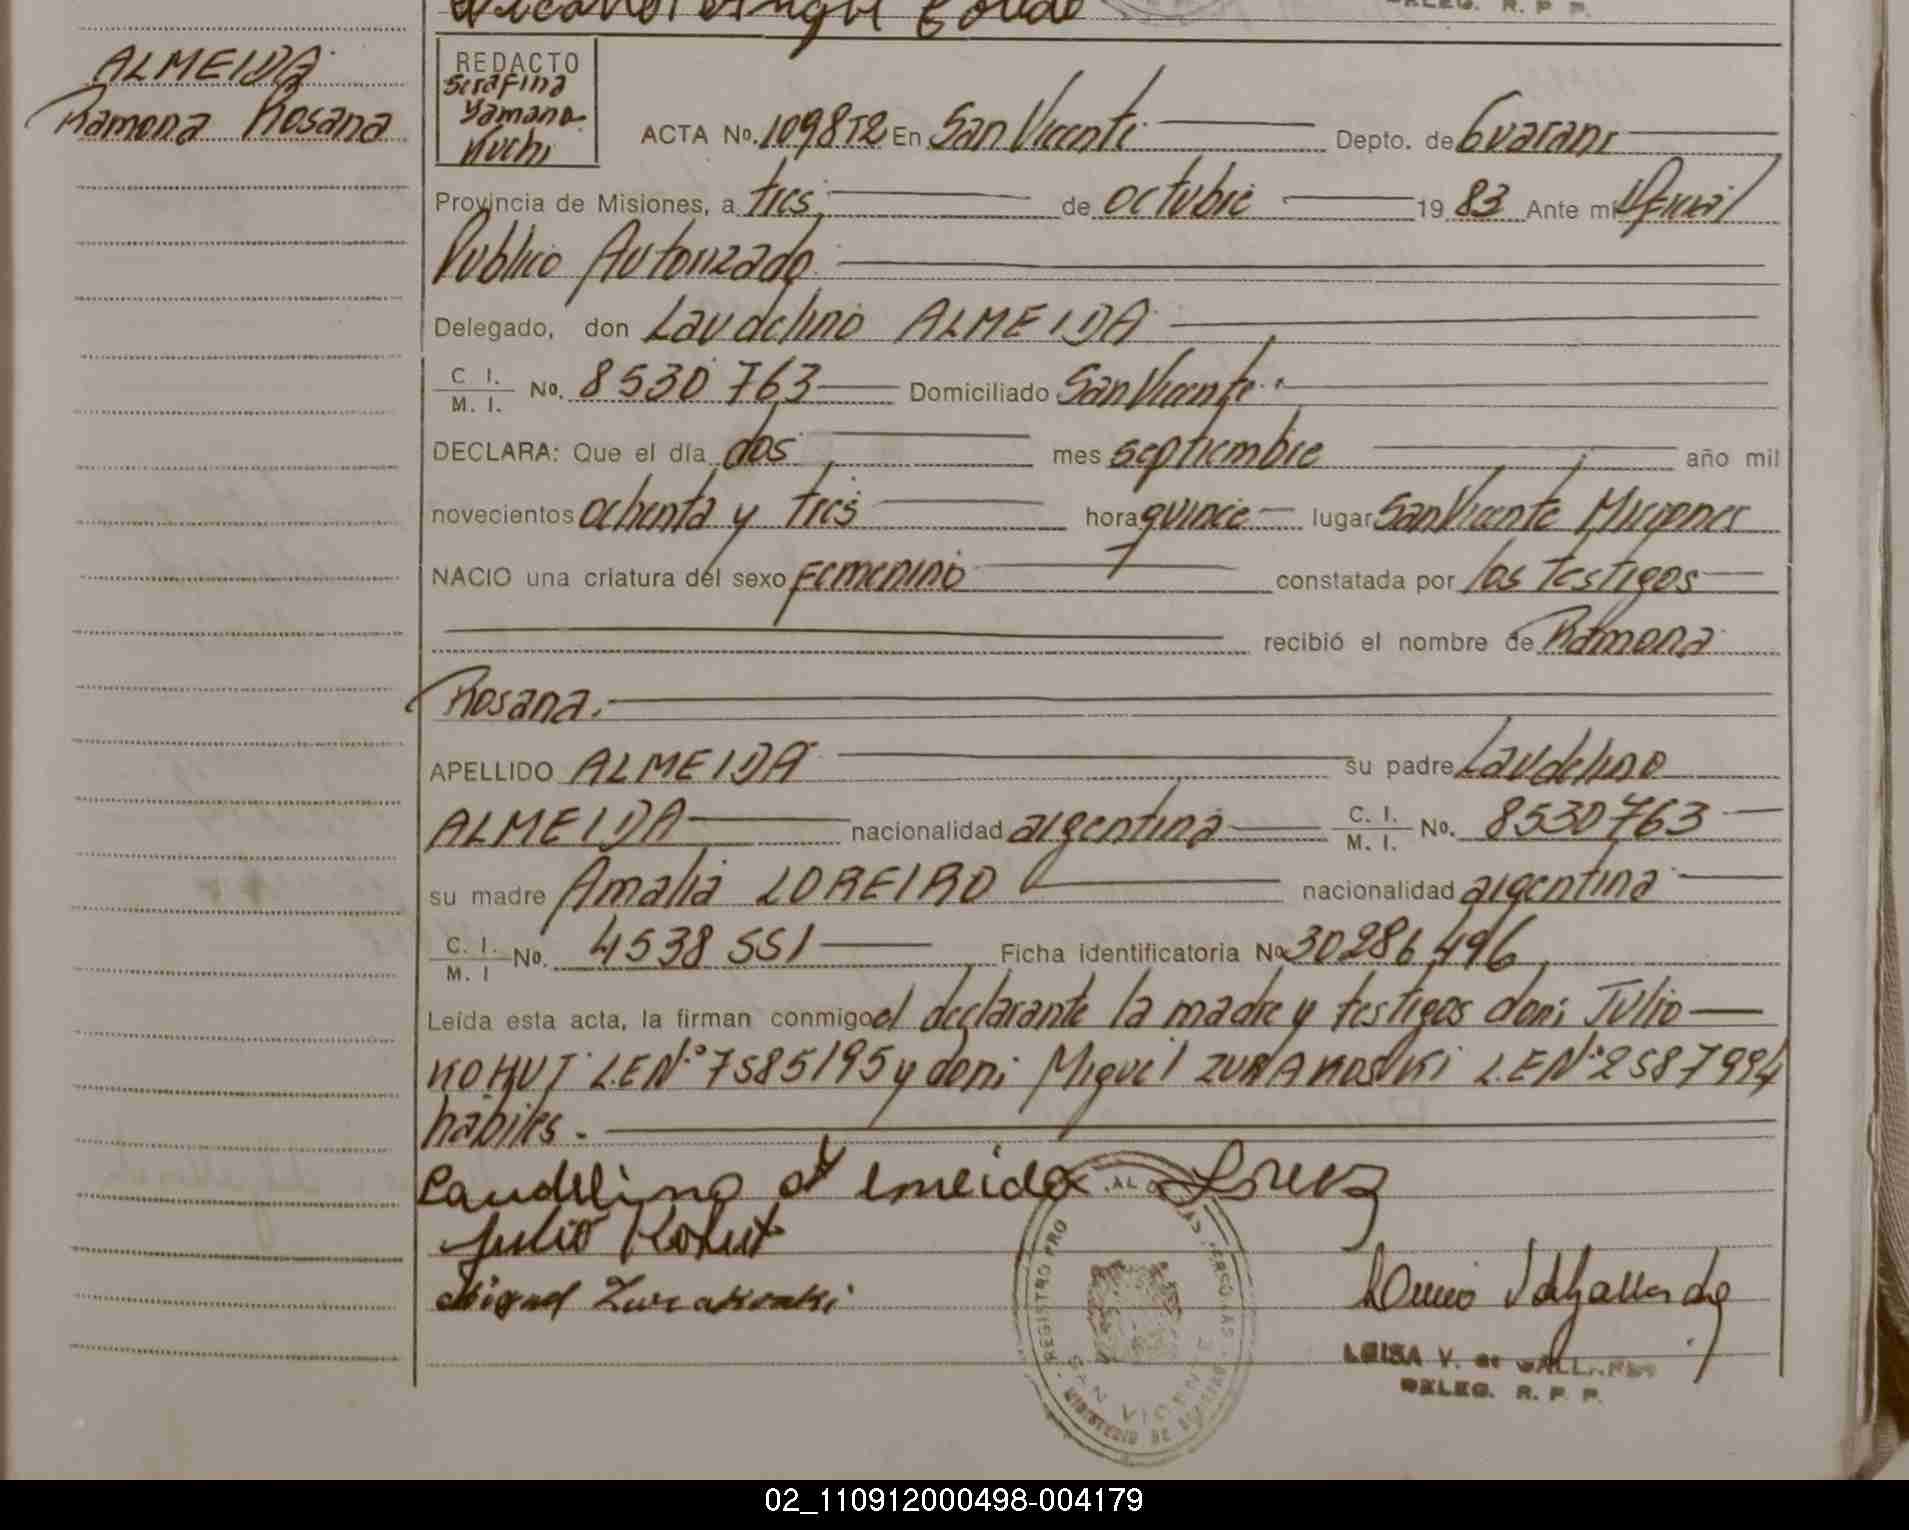 ALMEIDA
Ramona Rosana
REDACTO
Serafina
Yamana
Kuchi
ACTA No. 1098T2 En San Vicente Depto. de Guarani
Provincia de Misiones, a tres de octubre 19 83 Ante mi Oficial
Publico Autorizado
Delegado, don Laudelino ALMEIDA
C. I. / M. I. No. 8530763 Domiciliado San Vicente.
DECLARA: Que el día dos mes septiembre año mil
novecientos ochenta y tres hora quince lugar San Vicente Misiones
NACIO una criatura del sexo femenino constatada por los testigos
recibió el nombre de Ramona
Rosana.
APELLIDO ALMEIDA su padre Laudelino
ALMEIDA nacionalidad argentina C. I. / M. I. No. 8530763
su madre Amalia LOREIRO nacionalidad argentina
C. I. / M. I No. 4538551 Ficha identificatoria No 30286496
Leída esta acta, la firman conmigo el declarante la madre y testigos don: Julio
KOHUT L.E.Nº 7585195 y don: Miguel ZURAKOSVKI L.E.Nº 2587994
habiles.
Laudelino almeida
Julio Kohut
Miguel Zurakoski
REGISTRO PRO
SAN VICENTE
LUISA V. de GALLARDO
DELEG. R. P. P.
02_110912000498-004179